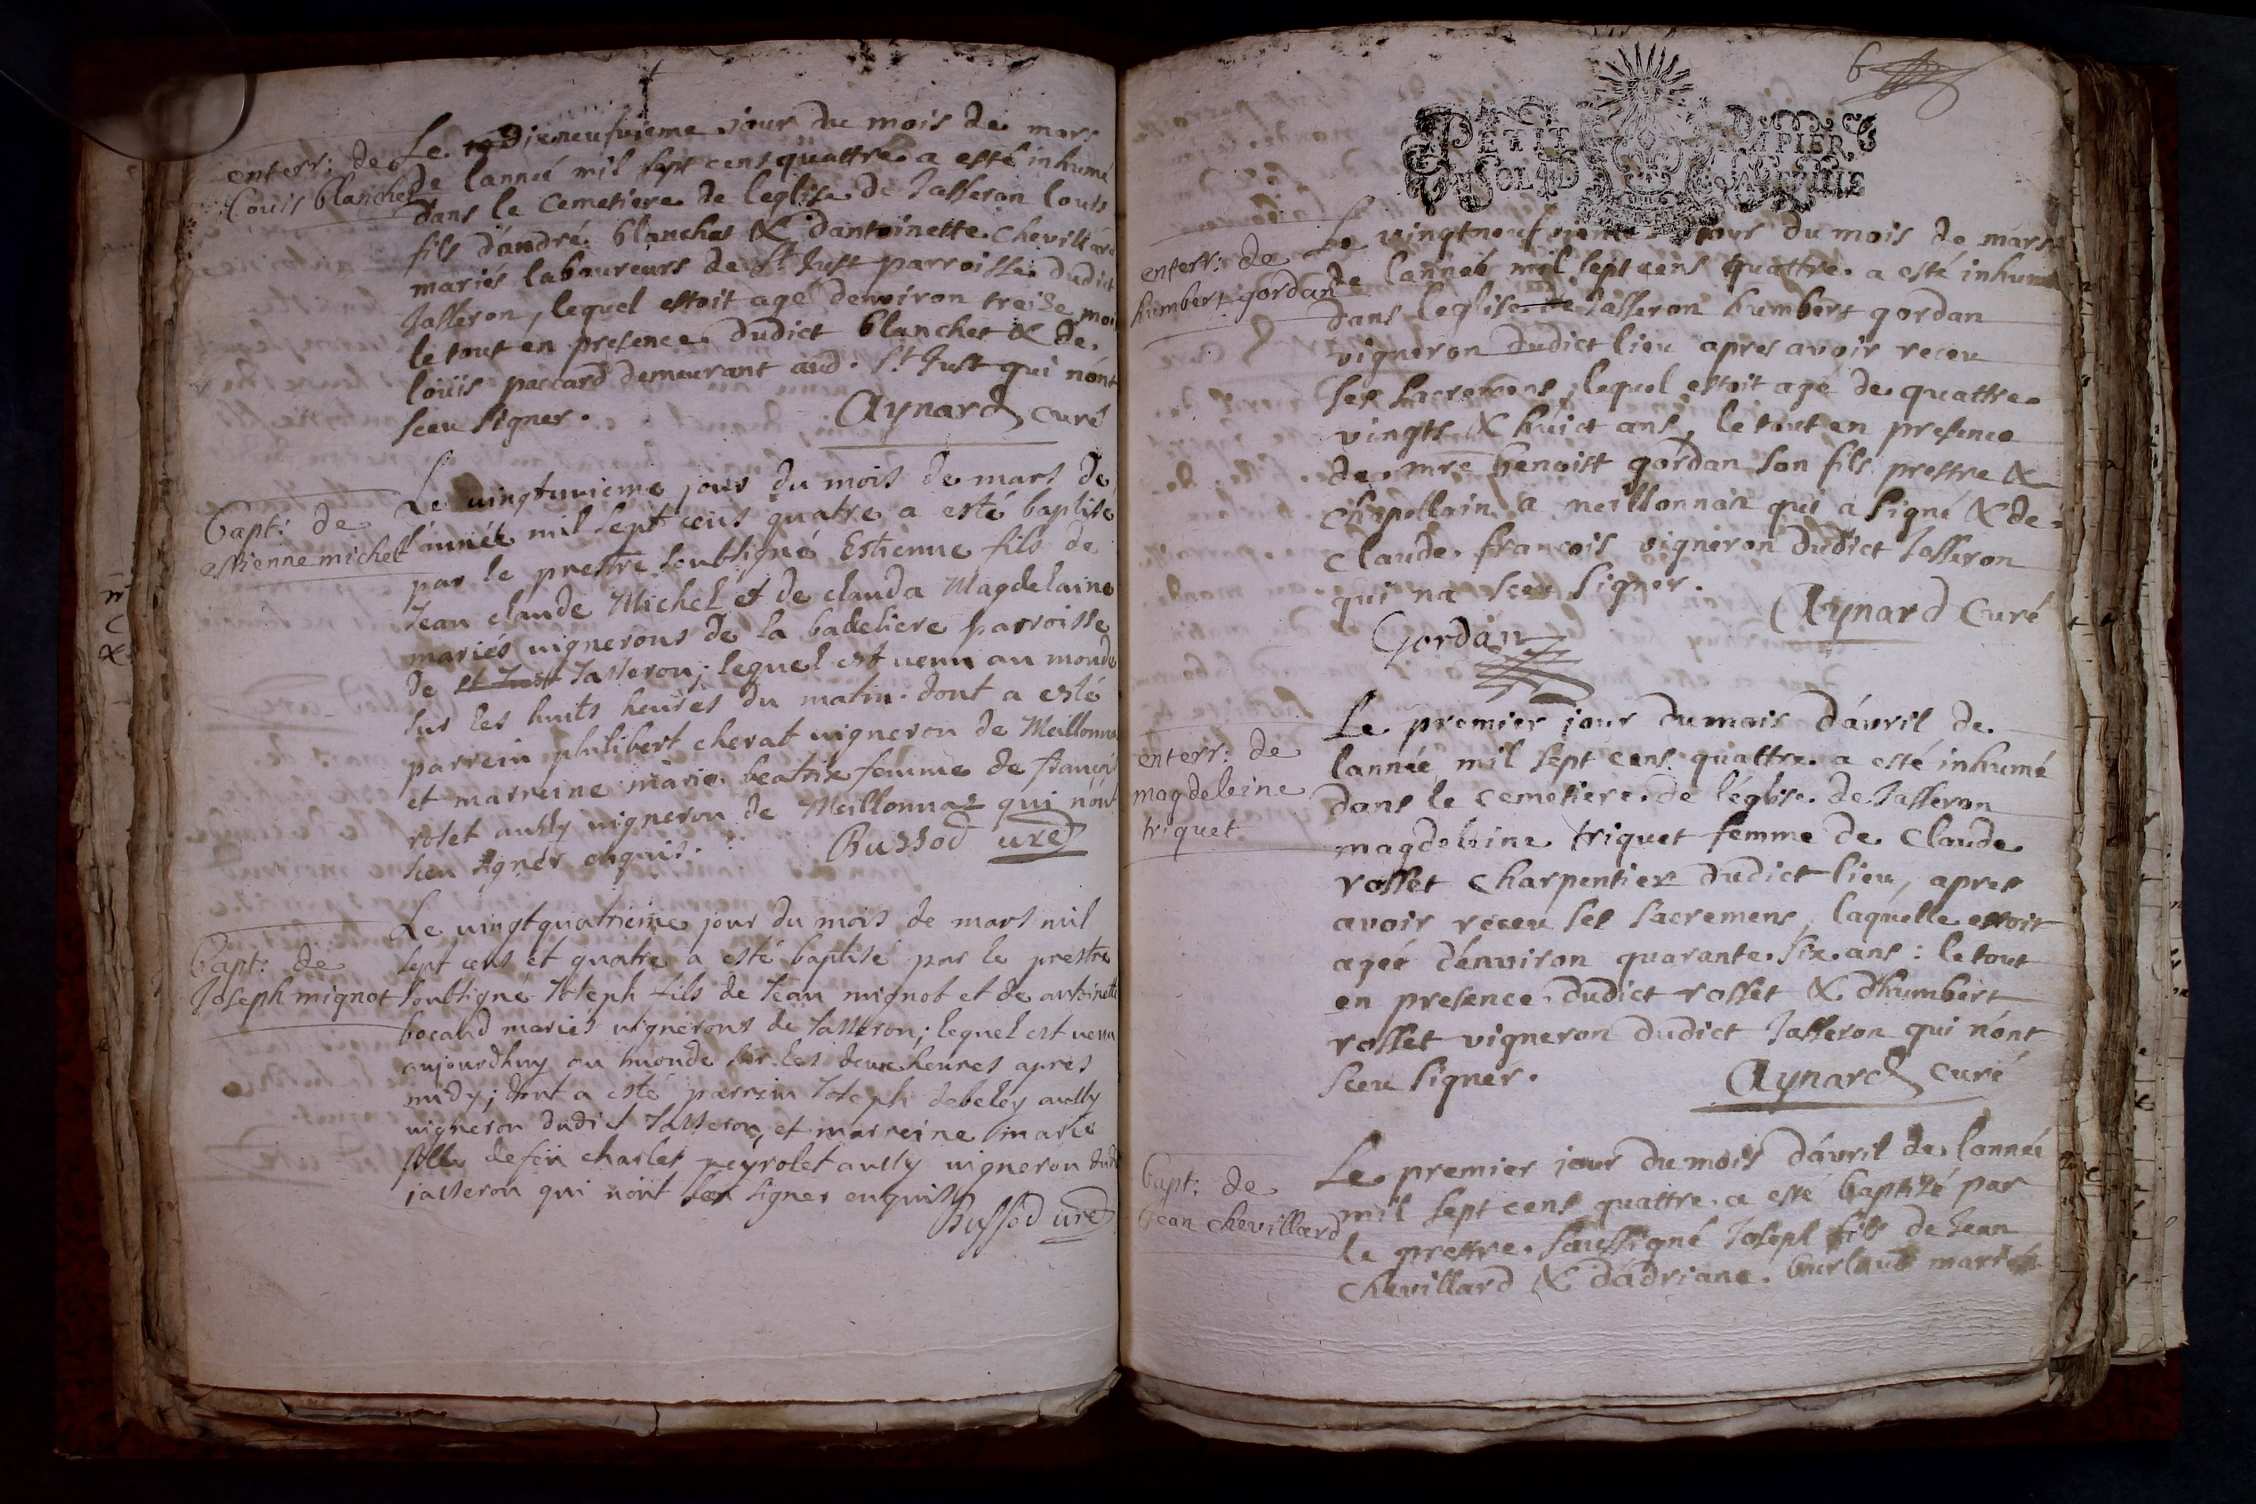 enterr: de
Louis blanchet
Le dixneufvieme jour du mois de mars
de lanneé mil sept cens quattre a esté inhumé
dans le cemetiere de leglise de Jasseron louis
fils d'andré blanchet & dantoinette chevillard
mariés laboureurs de St Just parroisse dudict
Jasseron, lequel estoit agé denviron treize mois
le tout en presence dudict blanchet & de
loüis paccard demeurant aud. St Just qui n'ont
sceu signer.
Aynard curé
bapt: de
estienne michel
Le vingtuvieme jour du mois de mars de
l'année mil sept cens quatre a esté baptise
par le prestre soubsigné Estienne fils de
Jean claude Michel et de clauda Magdelaine
mariés vignerons de la badeliere parroisse
de st Just Jasseron; lequel est venu au monde
sus les huits heures du matin. dont a esté
parrein philibert cherat vigneron de Meillonna
et marreine marie beatrix femme de françois
rolet aussy vigneron de Meillonnaz qui n'ont
sceu signer enquis.
Bussod curé
bapt: de
Joseph mignot
Le vingtquatrieme jour du mois de mars mil
sept cens et quatre a esté baptisé par le prestre
soubsigné Joseph fils de Jean mignot et de antoinette
bocand mariés vignerons de Jasseron; lequel est venu
aujourdhuy au monde sur les deux heures apres
midy; dont a esté parrein Joseph debeley aussy
vigneron dudict Jasseron, et marreine marie
fille defeu charles peyrolet aussy vigneron dudit
jasseron qui n'ont sceu signer enquis
Bussod curé
6
PETIT PAPIER
enterr: de
humbert gordan
Le vingtneufvieme jour du mois de mars
de lanneé mil sept cens quattre a esté inhumé
dans leglise de Jasseron humbert gordan
vigneron dudict lieu apres avoir receu
ses sacremens, lequel estoit agé de quattre
vingts & huict ans, le tout en presence
de mre benoist gordan son fils prestre &
chapellain a meillonnaz qui a signé & de
claude francois vigneron dudict Jasseron
qui na sceu signer.
Aynard curé
Gordan
enterr: de
magdeleine
triquet
Le premier jour du mois d'avril de
lannée mil sept cens quattre a esté inhumé
dans le cemetiere de l'église de Jasseron
magdeleine triquet femme de claude
rosset charpentier dudict lieu, apres
avoir receu ses sacremens, laquelle estoit
agée d'enviran quarante six ans: le tout
en presence dudict rosset & d'humbert
rosset vigneron dudict Jasseron qui n'ont
sceu signer.
Aynard curé
bapt: de
Jean chevillard
Le premier jour du mois d'avril de lannée
mil sept cens quattre a esté baptizé par
le prestre soussigné Joseph fils de Jean
chevillard & d'adriane burlaud mariés